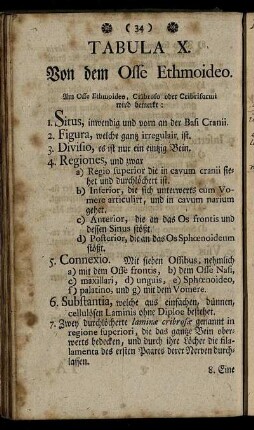 (34)
TABULA X.
Von dem Osse Ethmoideo.
Am Osse Ethmoideo, Cribroso oder Cribriformi
wird bemerkt:
1. Situs, inwendig und vorn an der Basi Cranii.
2. Figura, welche gantz irregulair, ist.
3. Divisio, es ist nur ein eintzig Bein.
4. Regiones, und zwar
a) Regio superior die in cavum cranii sie-
het und durchlöchert ist.
b) Inferior, die sich unterwerts cum Vo-
mere articulirt, und in cavum narium
gehet.
c) Anterior, die an das Os frontis und
dessen Sinus stößt.
d) Posterior, die an das Os Sphœnoideum
stößt.
5. Connexio. Mit sieben Ossibus, nehmlich
a) mit dem Osse frontis, b) dem Osse Nasi,
c) maxillari, d) unguis, e) Sphœnoideo,
f) palatino, und g) mit dem Vomere.
6. Substantia, welche aus einfachen, dünnen,
cellulösen Laminis ohne Diploe bestehet.
7. Zwey durchlöcherte laminæ cribrosæ genannt in
regione superiori, die das gantze Bein ober-
werts bedecken, und durch ihre Löcher die fila-
lamenta des ersten Paares derer Nerven durch-
lassen.
8. Eine